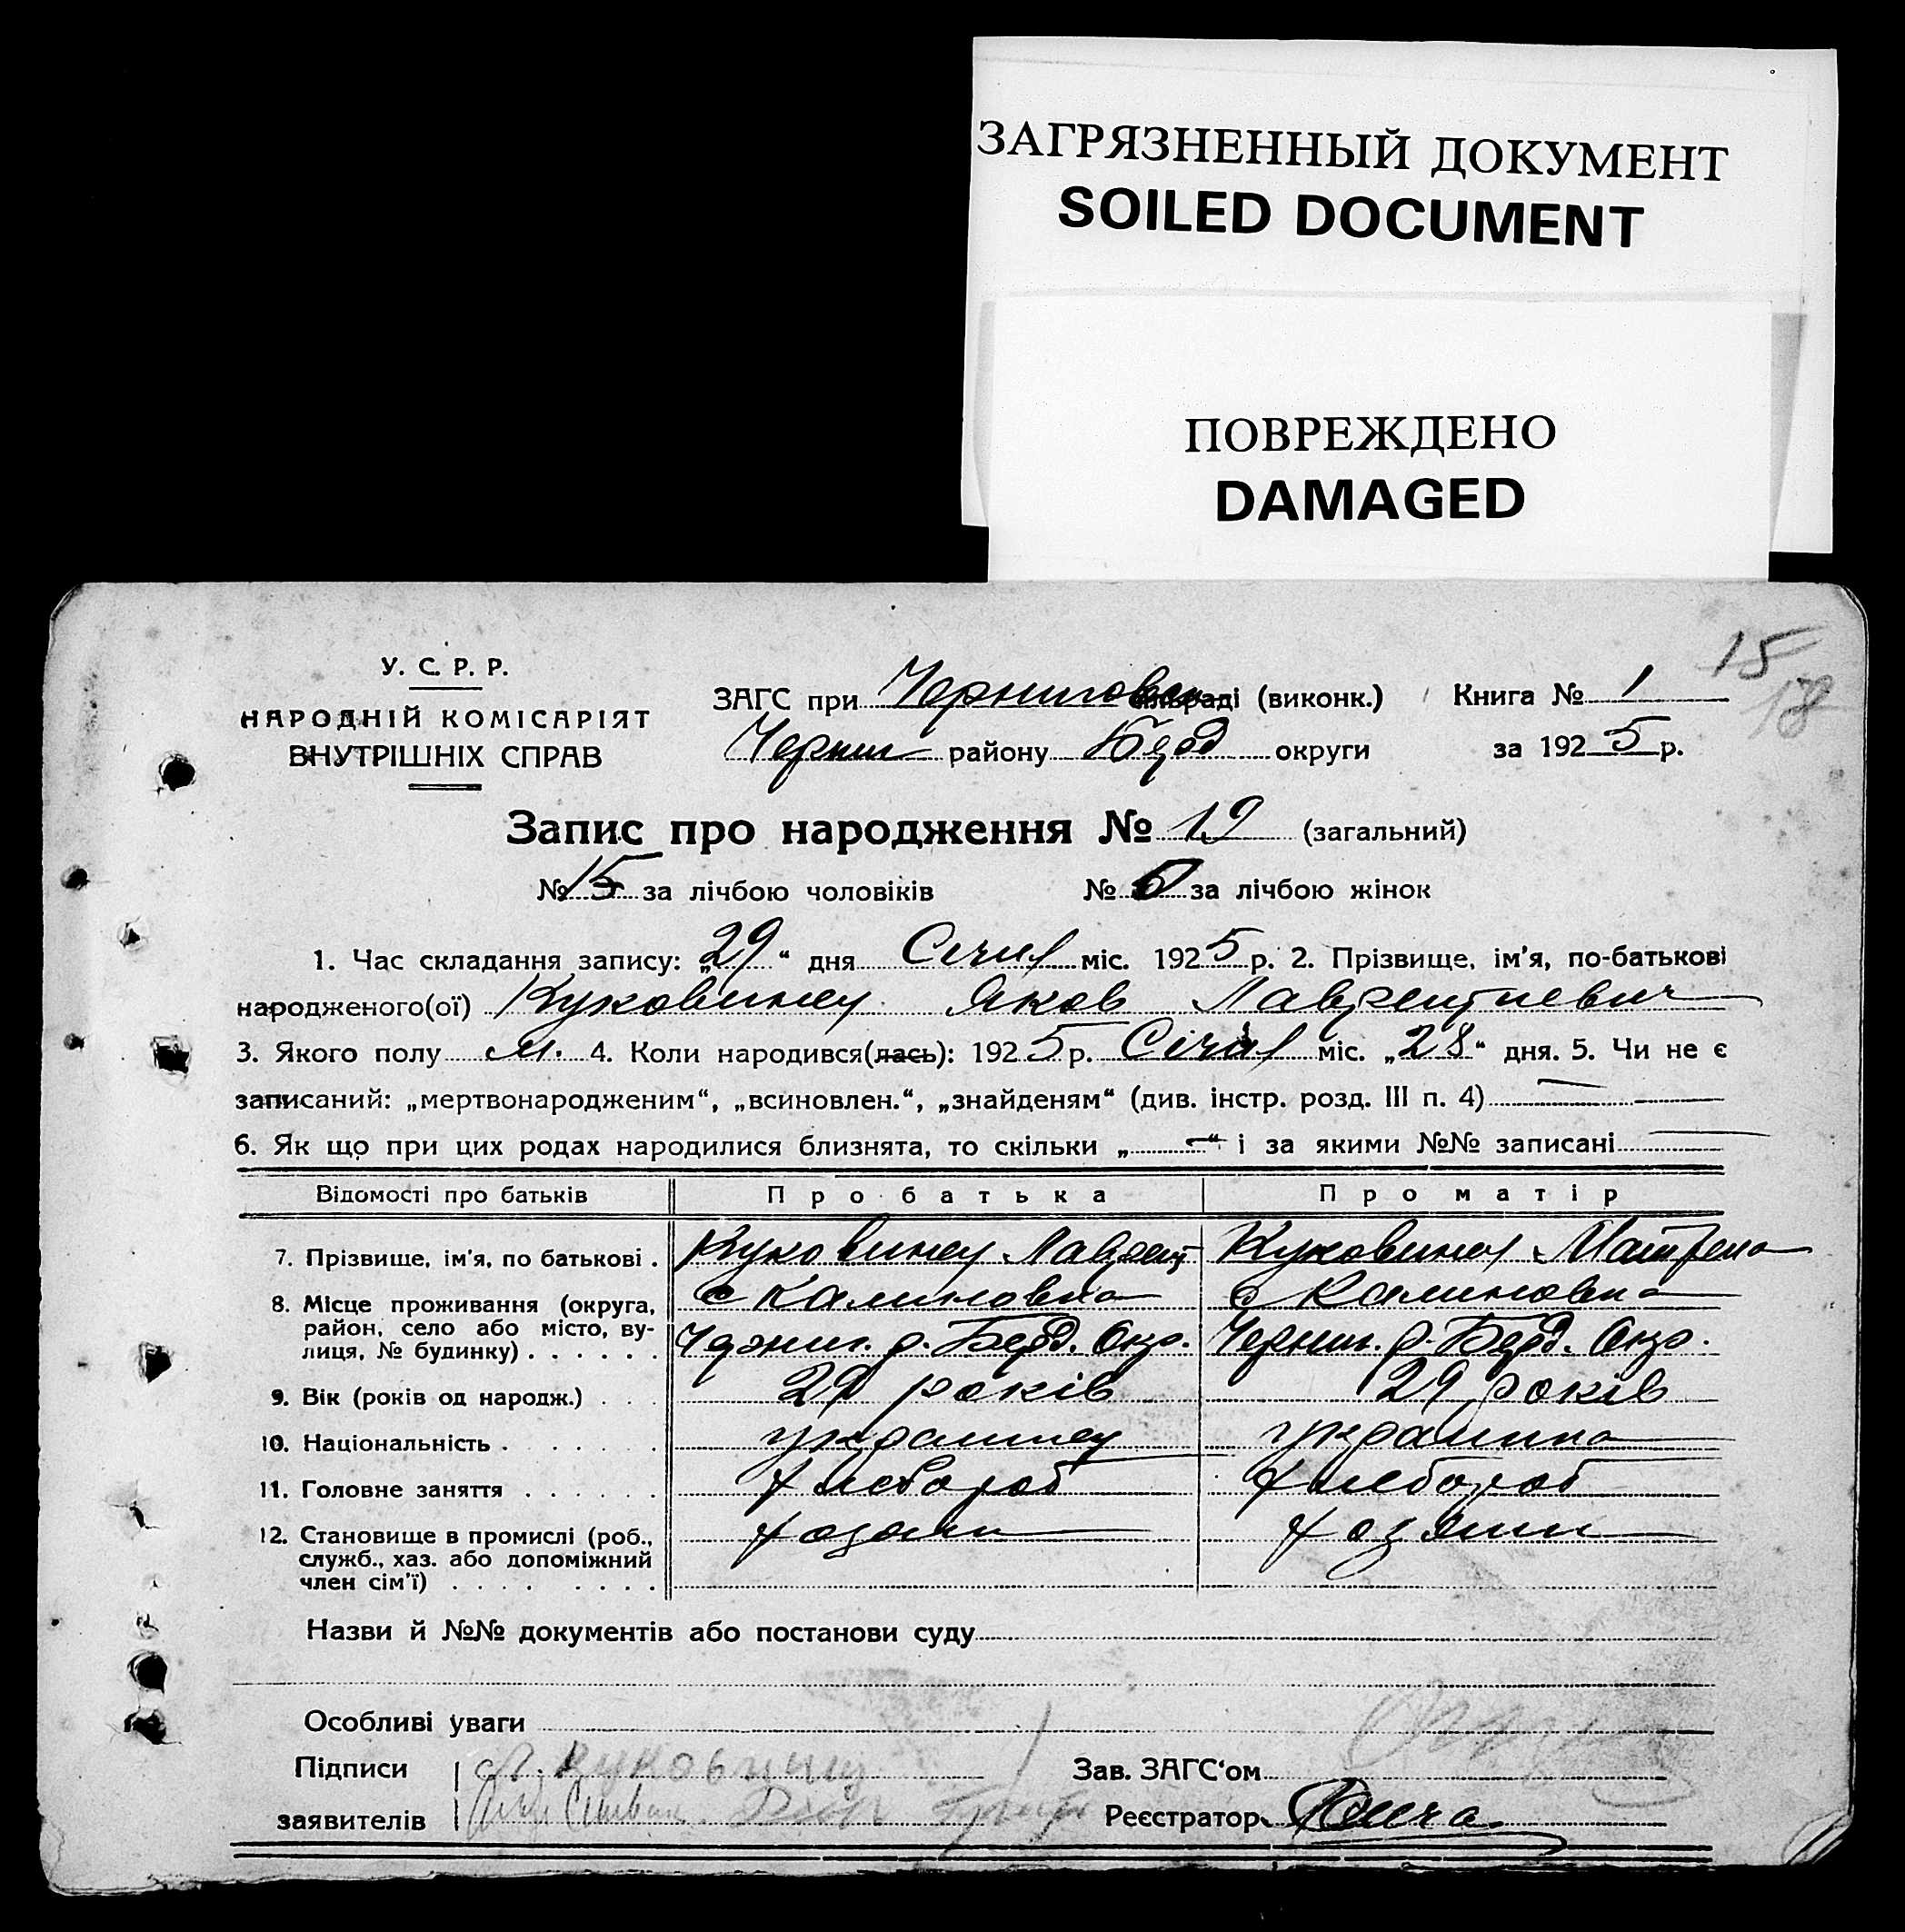 ЗАГРЯЗНЕННЫЙ ДОКУМЕНТ
SOILED DOCUMENT
ПОВРЕЖДЕНО
DAMAGED
15
18
У. С. Р. Р.
НАРОДНІЙ КОМІСАРІЯТ
ВНУТРІШНІХ СПРАВ
ЗАГС при Черниговск раді (виконк.) Книга № 1
Черниг району Берд округи за 1925 р.
Запис про народження № 19 (загальний)
№ 15 за лічбою чоловіків № за лічбою жінок
1. Час складання запису: „29“ дня Січня міс. 1925 р. 2. Прізвище, ім'я, по-батькові
народженого(ої) Куковинец Яков Лаврентиевич
3. Якого полу м. 4. Коли народився(лась): 1925 р. Січня міс. „28“ дня. 5. Чи не є
записаний: „мертвонародженим“, „всиновлен.“, „знайденям“ (див. інстр. розд. III п. 4) —
6. Як що при цих родах народилися близнята, то скільки „—“ і за якими №№ записані —
Відомості про батьків Про батька Про матір
7. Прізвище, ім'я, по батькові . Куковинец Лаврент Куковинец Матрена
8. Місце проживання (округа, с Калиновка с Калиновка
район, село або місто, ву-
лиця, № будинку) . . . . . . Черниг. р. Берд. Окр. Черниг. р. Берд. Окр.
9. Вік (років од народж.) . . . 29 років 29 років
10. Національність . . . . . . . украинец украинка
11. Головне заняття . . . . . . хлебороб хлебороб
12. Становище в промислі (роб., хозяин хозяин
служб., хаз. або допоміжний
член сім'ї) . . . . . . . . .
Назви й №№ документів або постанови суду
Особливі уваги
Підписи Куковинец Зав. ЗАГС'ом
заявителів Реєстратор